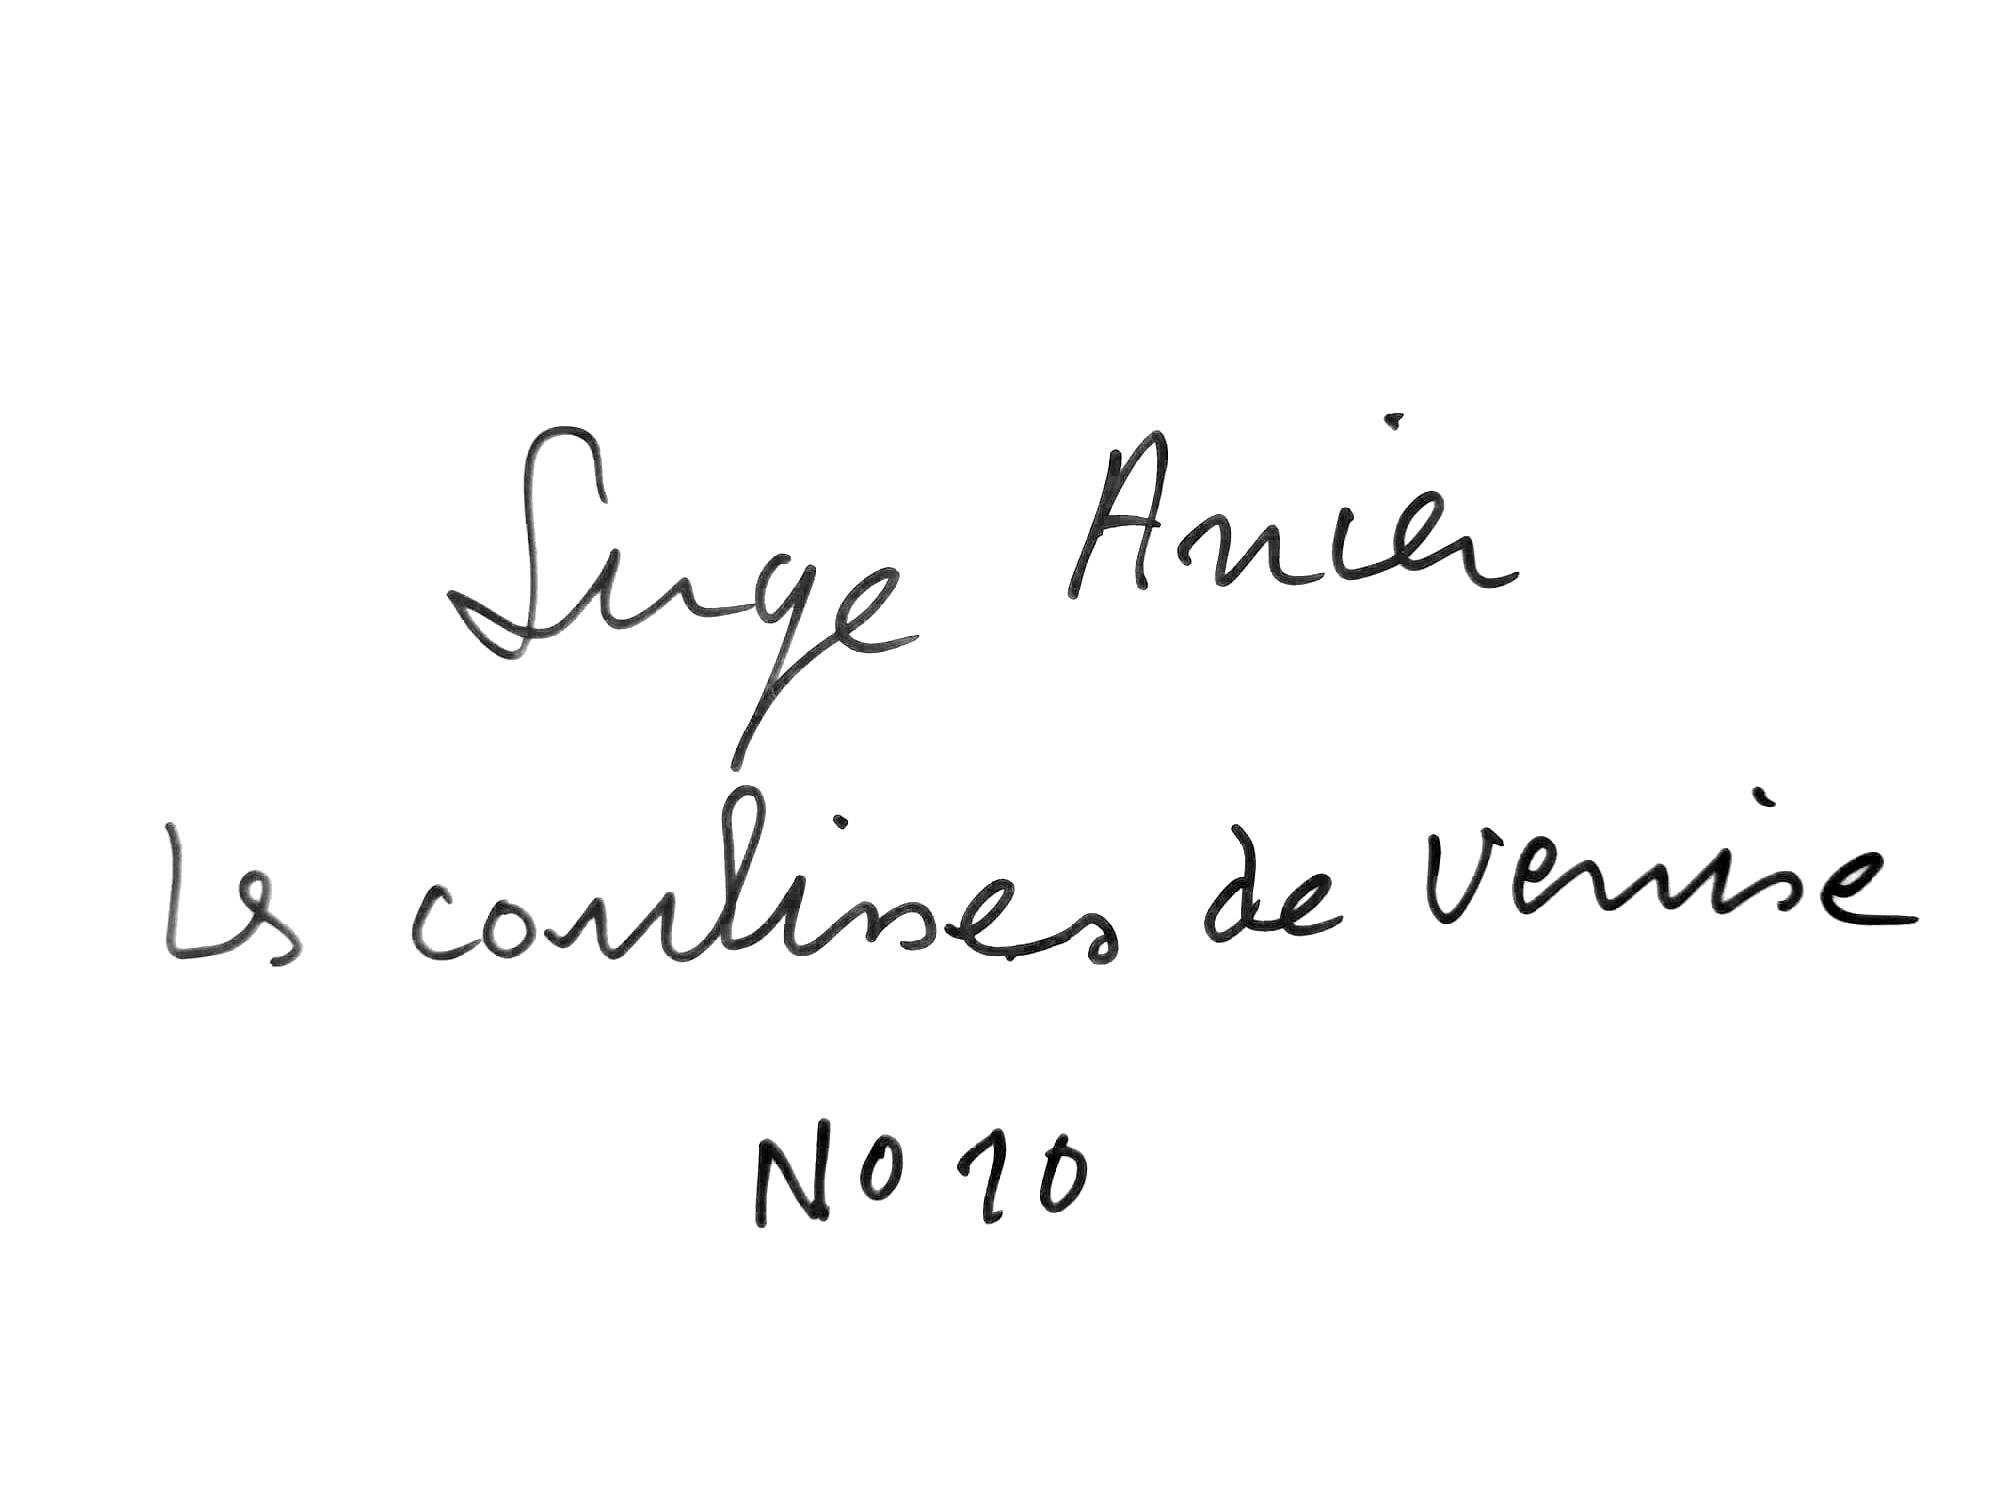 Serge Anier
Les coulisses de Venise
No 10